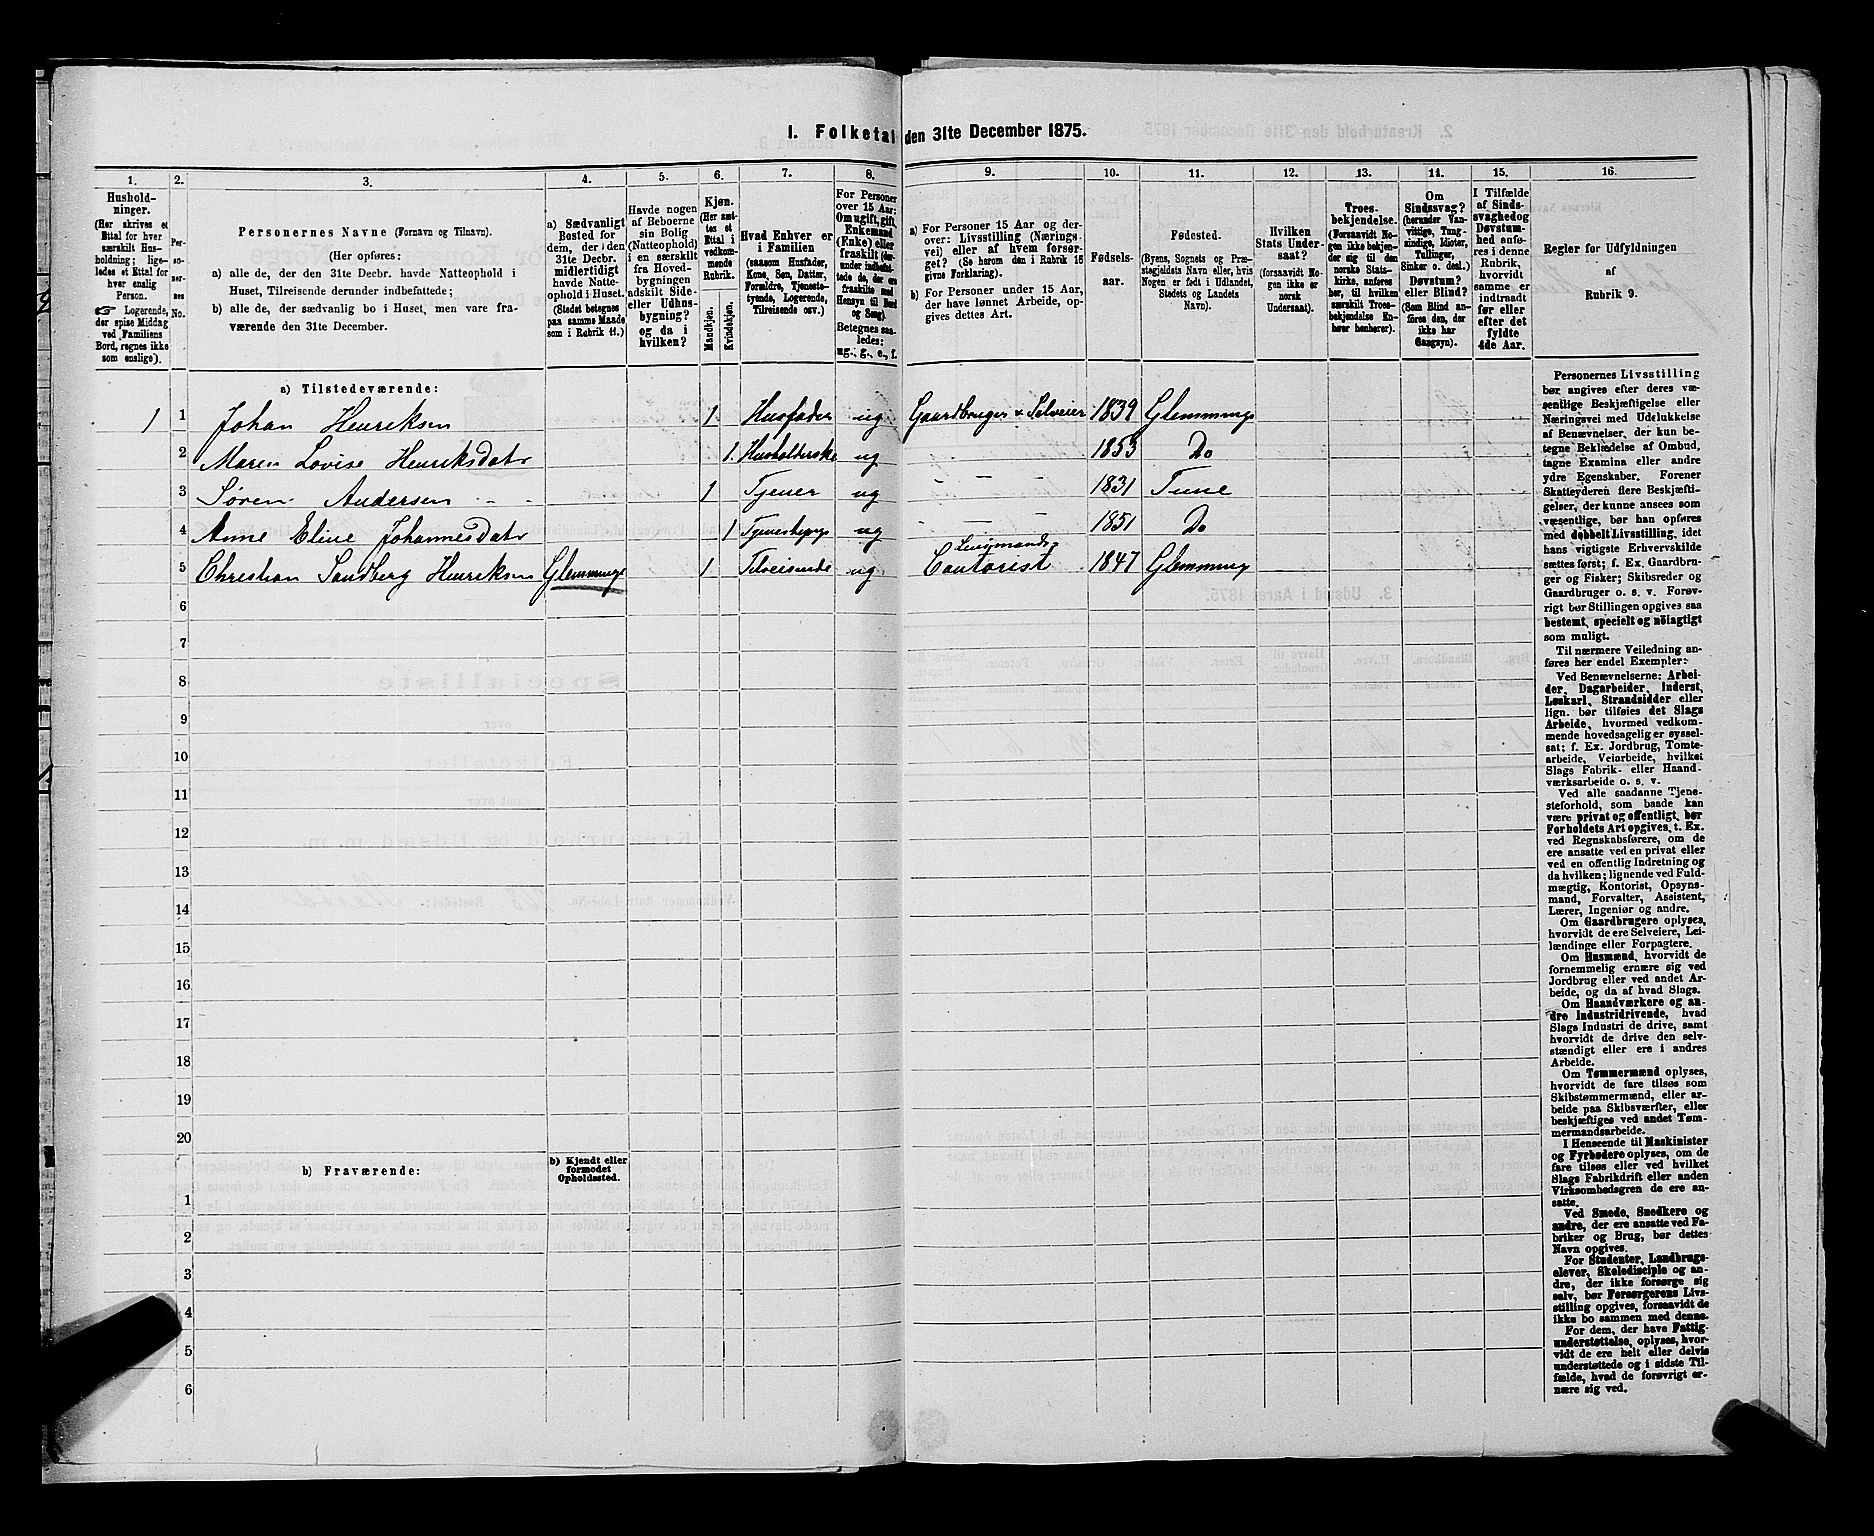 I. Folketal den 31te December 1875.
1. 2. 3. 4. 5. 6. 7. 8. 9. 10. 11. 12. 13. 14. 15. 16.
Hushold-
ninger.
(Her skrives et
Ettal for hver
særskilt Hus-
holdning; lige-
ledes et Ettal for
hver enslig
Person.
Logerende,
der spise Middag
ved Familiens
Bord, regnes ikke
som enslige).
Per-
soner-
nes
No.
Personernes Navne (Fornavn og Tilnavn).
(Her opføres:
a) alle de, der den 31te Decbr. havde Natteophold i
Huset, Tilreisende derunder indbefattede;
b) alle de, der sædvanlig bo i Huset, men vare fra-
værende den 31te December.
a) Sædvanligt
Bosted for
dem, der i den
31te Decbr.
midlertidigt
havde Natte-
ophold i Huset.
(Stedet betegnes
paa samme Maade
som i Rubrik 11.)
Havde nogen
af Beboerne
sin Bolig
(Natteophold)
i en særskilt
fra Hoved-
bygningen
adskilt Side-
eller Udhus-
bygning?
og da i
hvilken?
Kjøn.
(Her sæt-
tes et
Ettal i
vedkom-
mende
Rubrik.
Mandkjøn.
Kvindekjøn.
Hvad Enhver er
i Familien
(saasom Husfader,
Kone, Søn, Datter,
Forældre, Tjeneste-
tyende, Logerende,
Tilreisende osv.)
For Personer
over 15 Aar:
Om ugift, gift
Enkemand
(Enke) eller
fraskilt
Betegnes saa-
ledes:
ug., g., e., f.
a) For Personer 15 Aar og der-
over: Livsstilling (Nærings-
vei) eller af hvem forsør-
get? (Se herom den i Rubrik 16
givne Forklaring).
b) For Personer under 15 Aar,
der have lønnet Arbeide, op-
gives dettes Art.
Fødsels-
aar.
Fødested.
(Byens, Sognets og Præ-
stegjeldets Navn eller, hvis
Nogen er født i Udlandet,
Stedets og Landets
Navn).
Hvilken
Stats Under-
saat?
(forsaavidt No-
gen ikke er
norsk
Undersaat).
Troes-
bekjendelse.
(Forsaavidt No-
gen ikke bekjen-
der sig til den
norske Stats-
kirke, anføres
her, til hvilken
særskilt Troes-
bekjendelse En-
hver henhører).
Om
Sindssvag?
(herunder Van-
vittige, Tung-
sindige, Idioter,
Tullinger,
Sinker o. desl.)
Døvstum?
eller Blind?
(Som Blind an-
føres den, der
ikke har
Gangsyn).
I Tilfælde
af Sinds-
svaghed og
Døvstum-
hed anfø-
res i denne
Rubrik,
hvorvidt
samme er
indtraadt
før eller
efter det
fyldte
4de Aar.
Regler for Udfyldningen
af
Rubrik 9.
a) Tilstedeværende:
1 1 Johan Henriksen 1 Husfader ug Gaardbruger & Selveier 1839 Glemminge
2 Maren Lovise Henriksdatr 1 Husholderske ug 1853 Do
3 Søren Andersen 1 Tjener ug 1831 Tune
4 Anne Eline Johannesdatr 1 Tjenestepige ug 1851 Do
5 Christian Sandberg Henriksen Glemminge 1 Tilreisende ug Lensmands-
Contorist 1847 Glemming
6
7
8
9
10
11
12
13
14
15
16
17
18
19
20
b) Fraværende:
b) Kjendt eller
formodet
Opholdssted.
1
2
3
4
5
6
Personernes Livsstilling
bør angives efter deres væ-
sentlige Beskjæftigelse eller
Næringsvei med Udelukkelse
af Benævnelser, der kun be-
tegne Beklædelse af Ombud,
tagne Examina eller andre
ydre Egenskaber. Forener
Skatteyderen flere Beskjæfti-
gelser, der kunne ansees som
væsentlige, bør han opføres
med dobbelt Livsstilling, idet
hans vigtigste Erhvervskilde
sættes først; f. Ex. Gaardbru-
ger og Fisker; Skibsreder og
Gaardbruger o. s. v. Forøv-
rigt bør Stillingen opgives saa
bestemt, specielt og nöiagtigt
som muligt.
Til nærmere Veiledning an-
føres her endel Exempler:
Ved Benævnelserne: Arbei-
der, Dagarbeider, Inderst,
Løskarl, Strandsidder eller
lign. bør tilføies det Slags
Arbeide, hvormed vedkom-
mende hovedsagelig er syssel-
sat; f. Ex. Jordbrug, Tomte-
arbeide, Veiarbeide, hvilket
Slags Fabrik- eller Haand-
værksarbeide o. s. v.
Ved alle saadanne Tjene-
steforhold, som baade kan
være privat og offentligt, bør
Forholdets Art opgives, t. Ex.
ved Regnskabsførere, om de
ere ansatte ved en privat eller
ved en offentlig Indretning og
da hvilken; lignende ved Fuld-
mægtig, Kontorist, Opsyns-
mand, Forvalter, Assistent,
Lærer, Ingeniør og andre.
Om Gaardbrugere oplyses,
hvorvidt de ere Selveiere, Lei-
lændinge eller Forpagtere.
Om Husmænd, hvorvidt de
fornemmelig ernære sig ved
Jordbrug eller ved andet Ar-
beide, og da af hvad Slags.
Om Haandværkere og an-
dre Industridrivende, hvad
Slags Industri de drive, samt
hvorvidt de drive den selv-
stændigt eller ere i andres
Arbeide.
Om Tømmermænd oplyses,
hvorvidt de fare tilsøs som
Skibstømmermænd, eller ar-
beide paa Skibsværfter, eller
beskjæftiges ved andet Tøm-
mermandsarbeide.
I Henseende til Maskinister
og Fyrbødere oplyses, om de
fare tilsøs eller ved hvilket
Slags Fabrikdrift eller anden
Virksomhedsgren de ere an-
satte.
Ved Smede, Snedkere og
andre, der ere ansatte ved Fa-
briker og Brug, bør dettes
Navn opgives.
For Studenter, Landbrugs-
elever, Skoledisciple og an-
dre, der ikke forsørge sig
selv, bør Forsørgerens Livs-
stilling opgives, forsaavidt de
ikke bo sammen med denne.
For dem, der have Fattig-
understøttelse, oplyses, hvor-
vidt de ere helt eller delvis
understøttede og i sidste Til-
fælde, hvad de forøvrigt er-
nære sig ved.